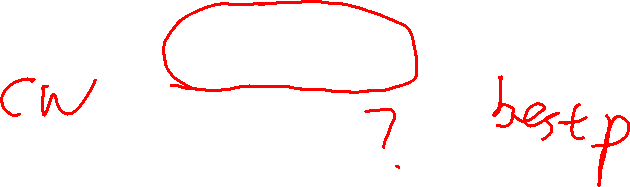 CW
?
best p